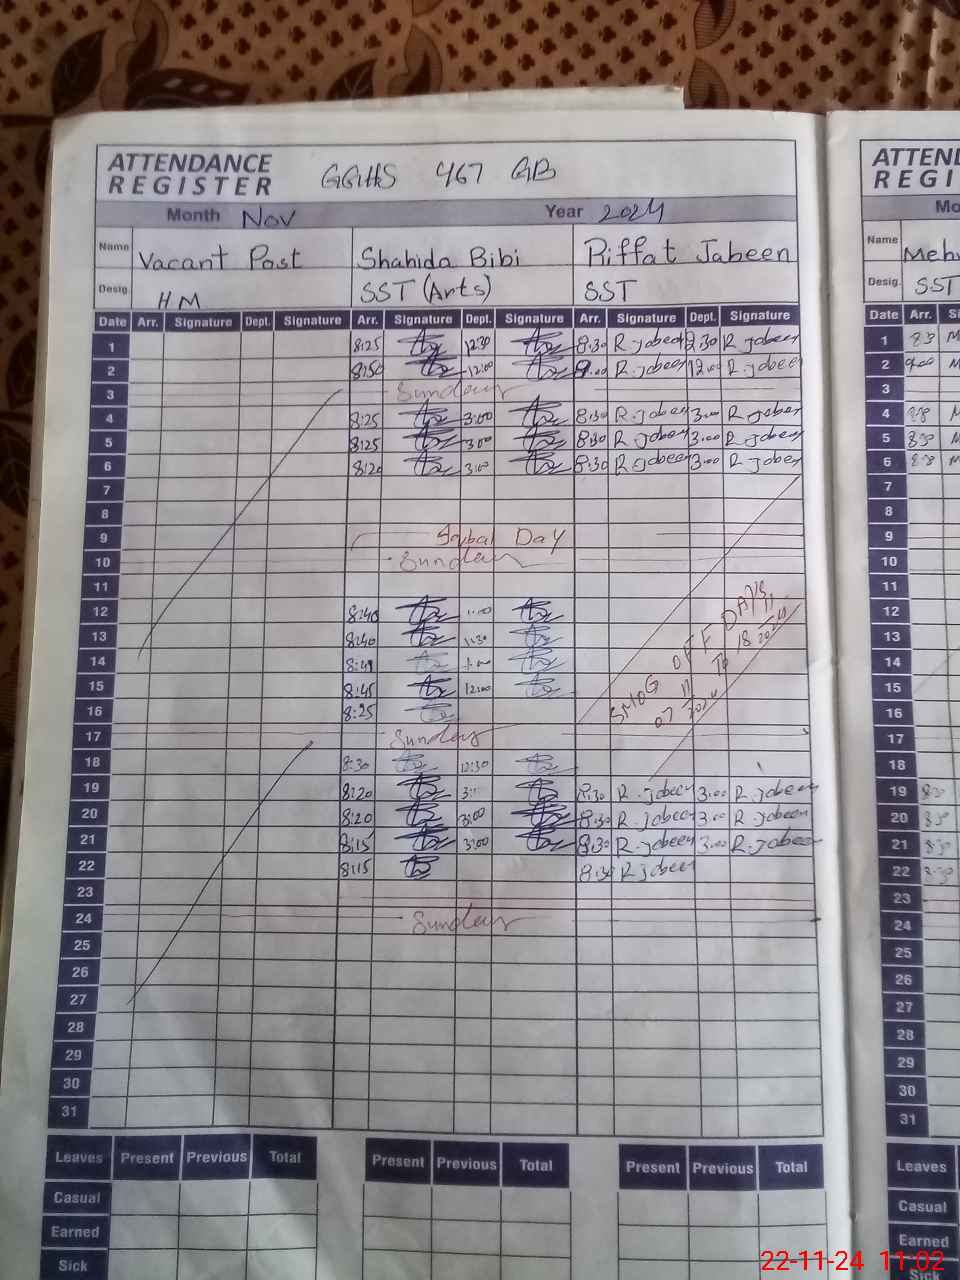 ATTENDANCE
REGISTER GGHS 467 GB
Month Nov Year 2024
Name Vacant Post Shahida Bibi Riffat Jabeen
Desig. HM SST (Arts) SST
Date Arr. Signature Dept. Signature Arr. Signature Dept. Signature Arr. Signature Dept. Signature
1 8:25 12:30 8:30 R.Jabeen 12:30 R.Jabeen
2 8:50 12:00 9:00 R.Jabeen 12:00 R.Jabeen
3 Sunday
4 8:25 3:00 8:30 R.Jabeen 3:00 R.Jabeen
5 8:25 3:00 8:30 R.Jabeen 3:00 R.Jabeen
6 8:20 3:00 8:30 R.Jabeen 3:00 R.Jabeen
7
8
9 Iqbal Day
10 Sunday
11
12 8:40
13 8:40
14
15 8:45 12:00
16 8:25
SMOG OFF DAYS
07 11 2024 To 18 11 2024
17 Sunday
18 8:30 12:30
19 8:20 8:30 R.Jabeen 3:00 R.Jabeen
20 8:20 3:00 8:30 R.Jabeen 3:00 R.Jabeen
21 8:15 3:00 8:30 R.Jabeen 3:00 R.Jabeen
22 8:15 8:30 R.Jabeen
23
24 Sunday
25
26
27
28
29
30
31
Leaves Present Previous Total Present Previous Total Present Previous Total
Casual
Earned
Sick
ATTEND
REGI
Mo
Name Meh
Desig. SST
Date Arr.
1
2
3
4
5
6
7
8
9
10
11
12
13
14
15
16
17
18
19
20
21
22
23
24
25
26
27
28
29
30
31
Leaves
Casual
Earned
Sick
22-11-24 11:02